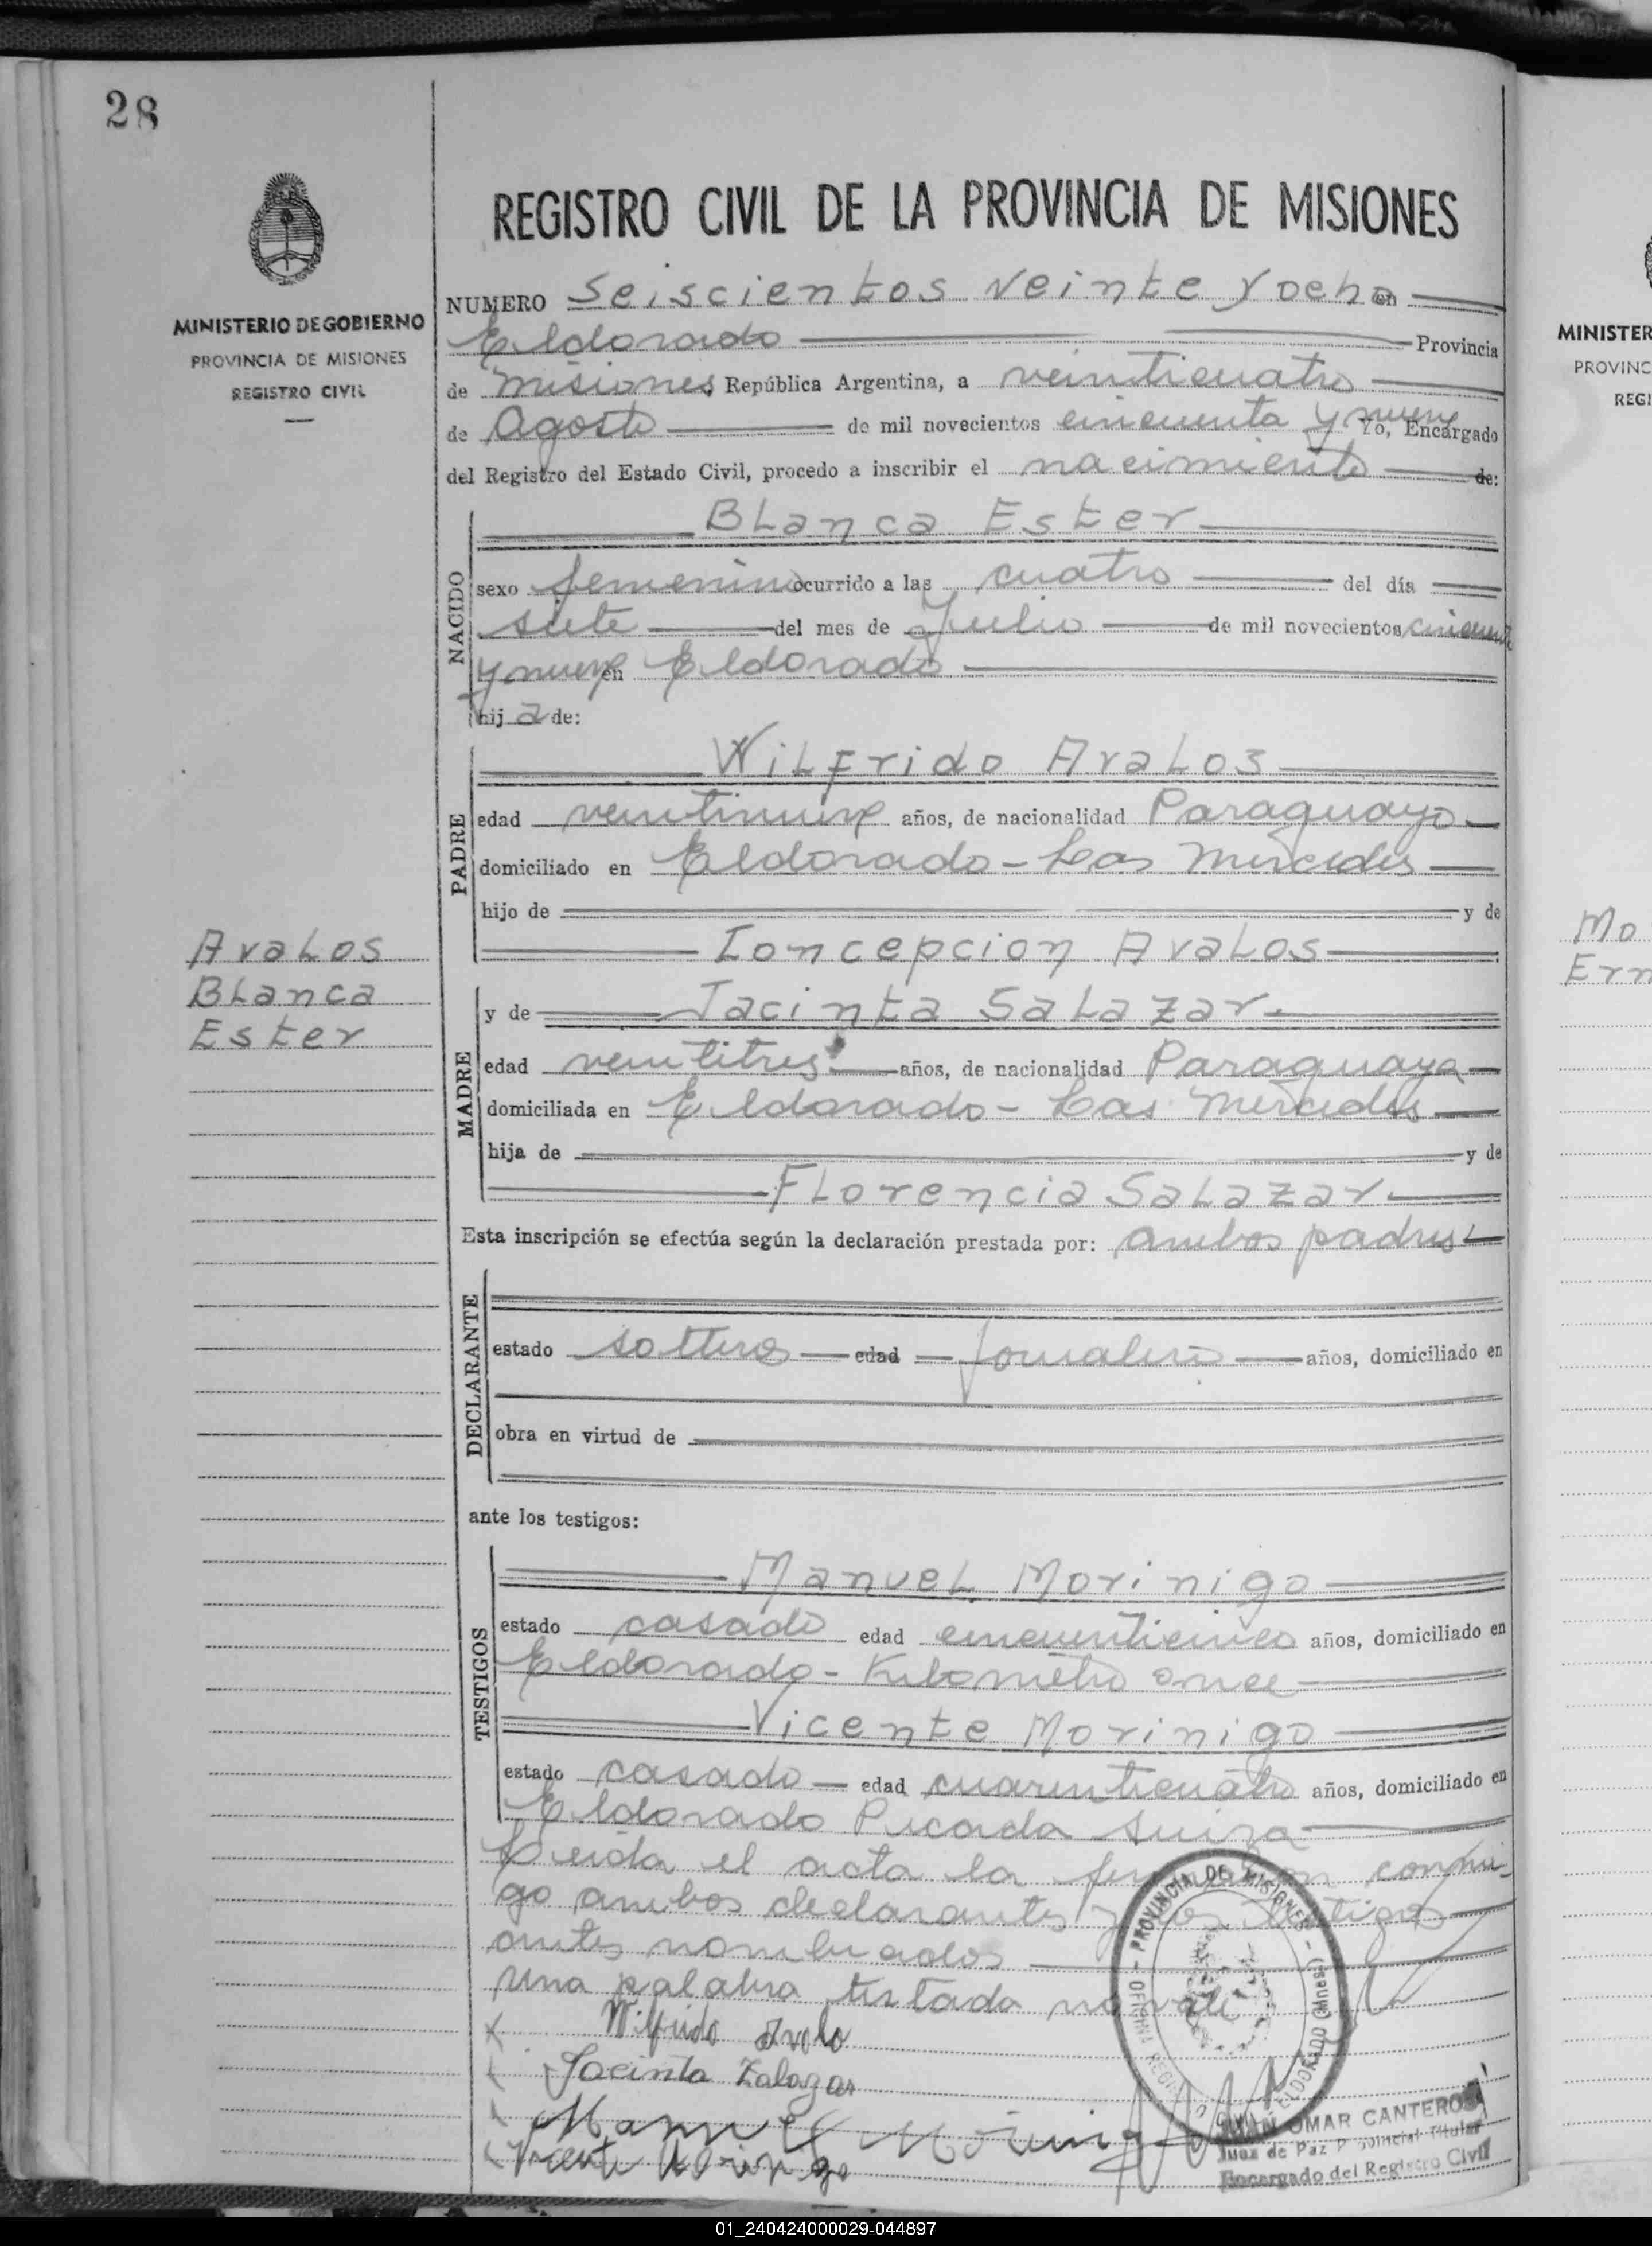 28
REGISTRO CIVIL DE LA PROVINCIA DE MISIONES
MINISTERIO DE GOBIERNO
PROVINCIA DE MISIONES
REGISTRO CIVIL
NUMERO Seiscientos veinte y ocho en
Eldorado Provincia
de Misiones República Argentina, a veinticuatro
de Agosto de mil novecientos cincuenta y nueve Yo, Encargado
del Registro del Estado Civil, procedo a inscribir el nacimiento de:
NACIDO
Blanca Ester
sexo femenino ocurrido a las cuatro del día
siete del mes de Julio de mil novecientos cincuenta
y nueve en Eldorado
hij a de:
PADRE
Wilfrido Avalos
edad veintinueve años, de nacionalidad Paraguayo
domiciliado en Eldorado - Las Mercedes
hijo de y de
Concepcion Avalos
Avalos
Blanca
Ester
MADRE
y de Jacinta Salazar
edad veintitres años, de nacionalidad Paraguaya
domiciliada en Eldorado - Las Mercedes
hija de y de
Florencia Salazar
Esta inscripción se efectúa según la declaración prestada por: ambos padres
DECLARANTE
estado soltero edad jornalero años, domiciliado en
obra en virtud de
ante los testigos:
TESTIGOS
Manuel Morinigo
estado casado edad cincuenticinco años, domiciliado en
Eldorado - Kilometro once
Vicente Morinigo
estado casado edad cuarenticuatro años, domiciliado en
Eldorado Picada Suiza
Leida el acta la firman con conmi-
go ambos declarantes y los testigos
antes nombrados
Una palabra testada no vale
Wilfrido Avalo
Jacinta Zalazar
Manuel Morinigo
Vicente Morinigo
PROVINCIA DE MISIONES - ELDORADO (Mnes) - OFICINA REGISTRO CIVIL
JUAN OMAR CANTEROS
Juez de Paz Provincial Titular
Encargado del Registro Civil
MINISTER
PROVINC
REGI
Mo
Ern
01_240424000029-044897